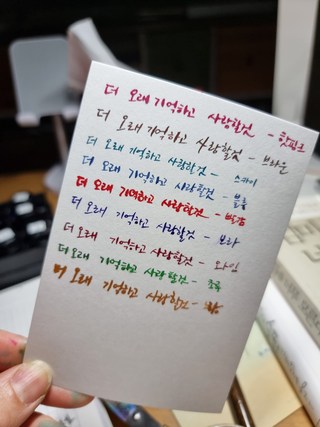 더 오래 기억하고 사랑할것 - 핫핑크
더 오래 기억하고 사랑할것 - 브라운
더 오래 기억하고 사랑할것 - 스카이
더 오래 기억하고 사랑할것 - 블루
더 오래 기억하고 사랑할것 - 빨강
더 오래 기억하고 사랑할것 - 보라
더 오래 기억하고 사랑할것 - 와인
더 오래 기억하고 사랑할것 - 초록
더 오래 기억하고 사랑할것 -